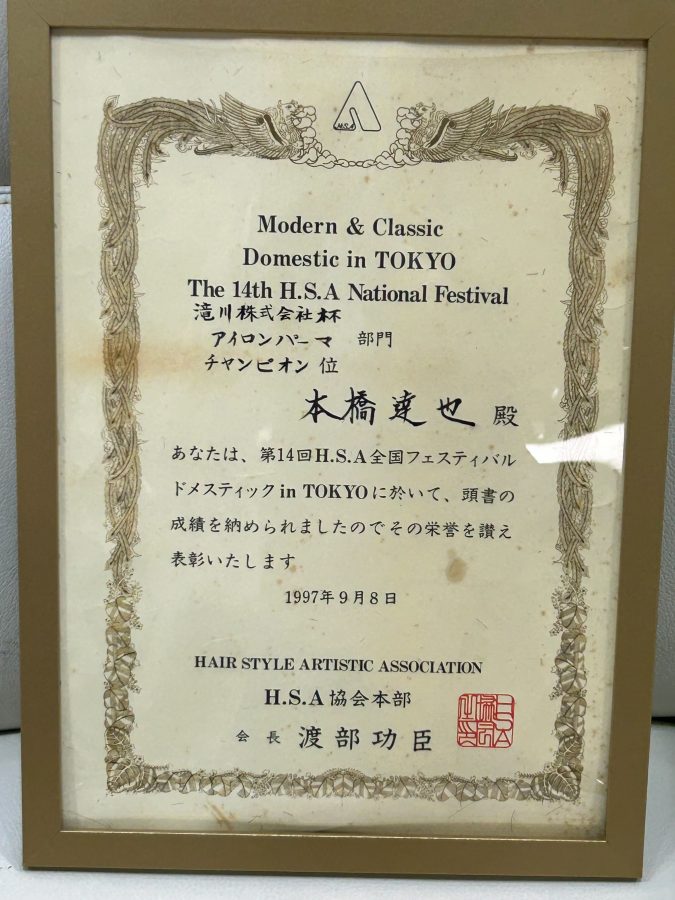 H.S.A
Modern & Classic
Domestic in TOKYO
The 14th H.S.A National Festival
滝川株式会社杯
アイロンパーマ 部門
チャンピオン 位
本橋達也 殿
あなたは、第14回H.S.A全国フェスティバル
ドメスティック in TOKYOに於いて、頭書の
成績を納められましたのでその栄誉を讃え
表彰いたします
1997年9月8日
HAIR STYLE ARTISTIC ASSOCIATION
H.S.A協会本部
会長 渡部功臣